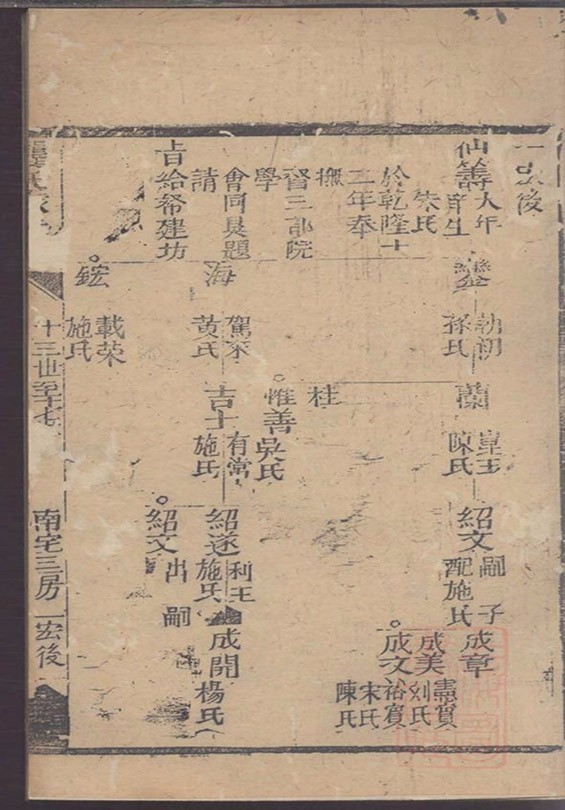 後
仙籌
大年
庠生
朱氏
於乾隆十
二年奉
撫
督三部院
學
會同具題
請
旨給帑建坊
鑾
朝初
孫氏
海
駕宗
黃氏
鋐
載榮
施氏
蘭
陳氏
桂
惟善
吳氏
吉士
有常
施氏
紹文
嗣子
配施氏
紹遂
利王
施氏
紹文
出嗣
成章
成美
憲實
劉氏
成文
裕實
宋氏
陳氏
成開
楊氏
十三世至十七
南宅三房
宏後